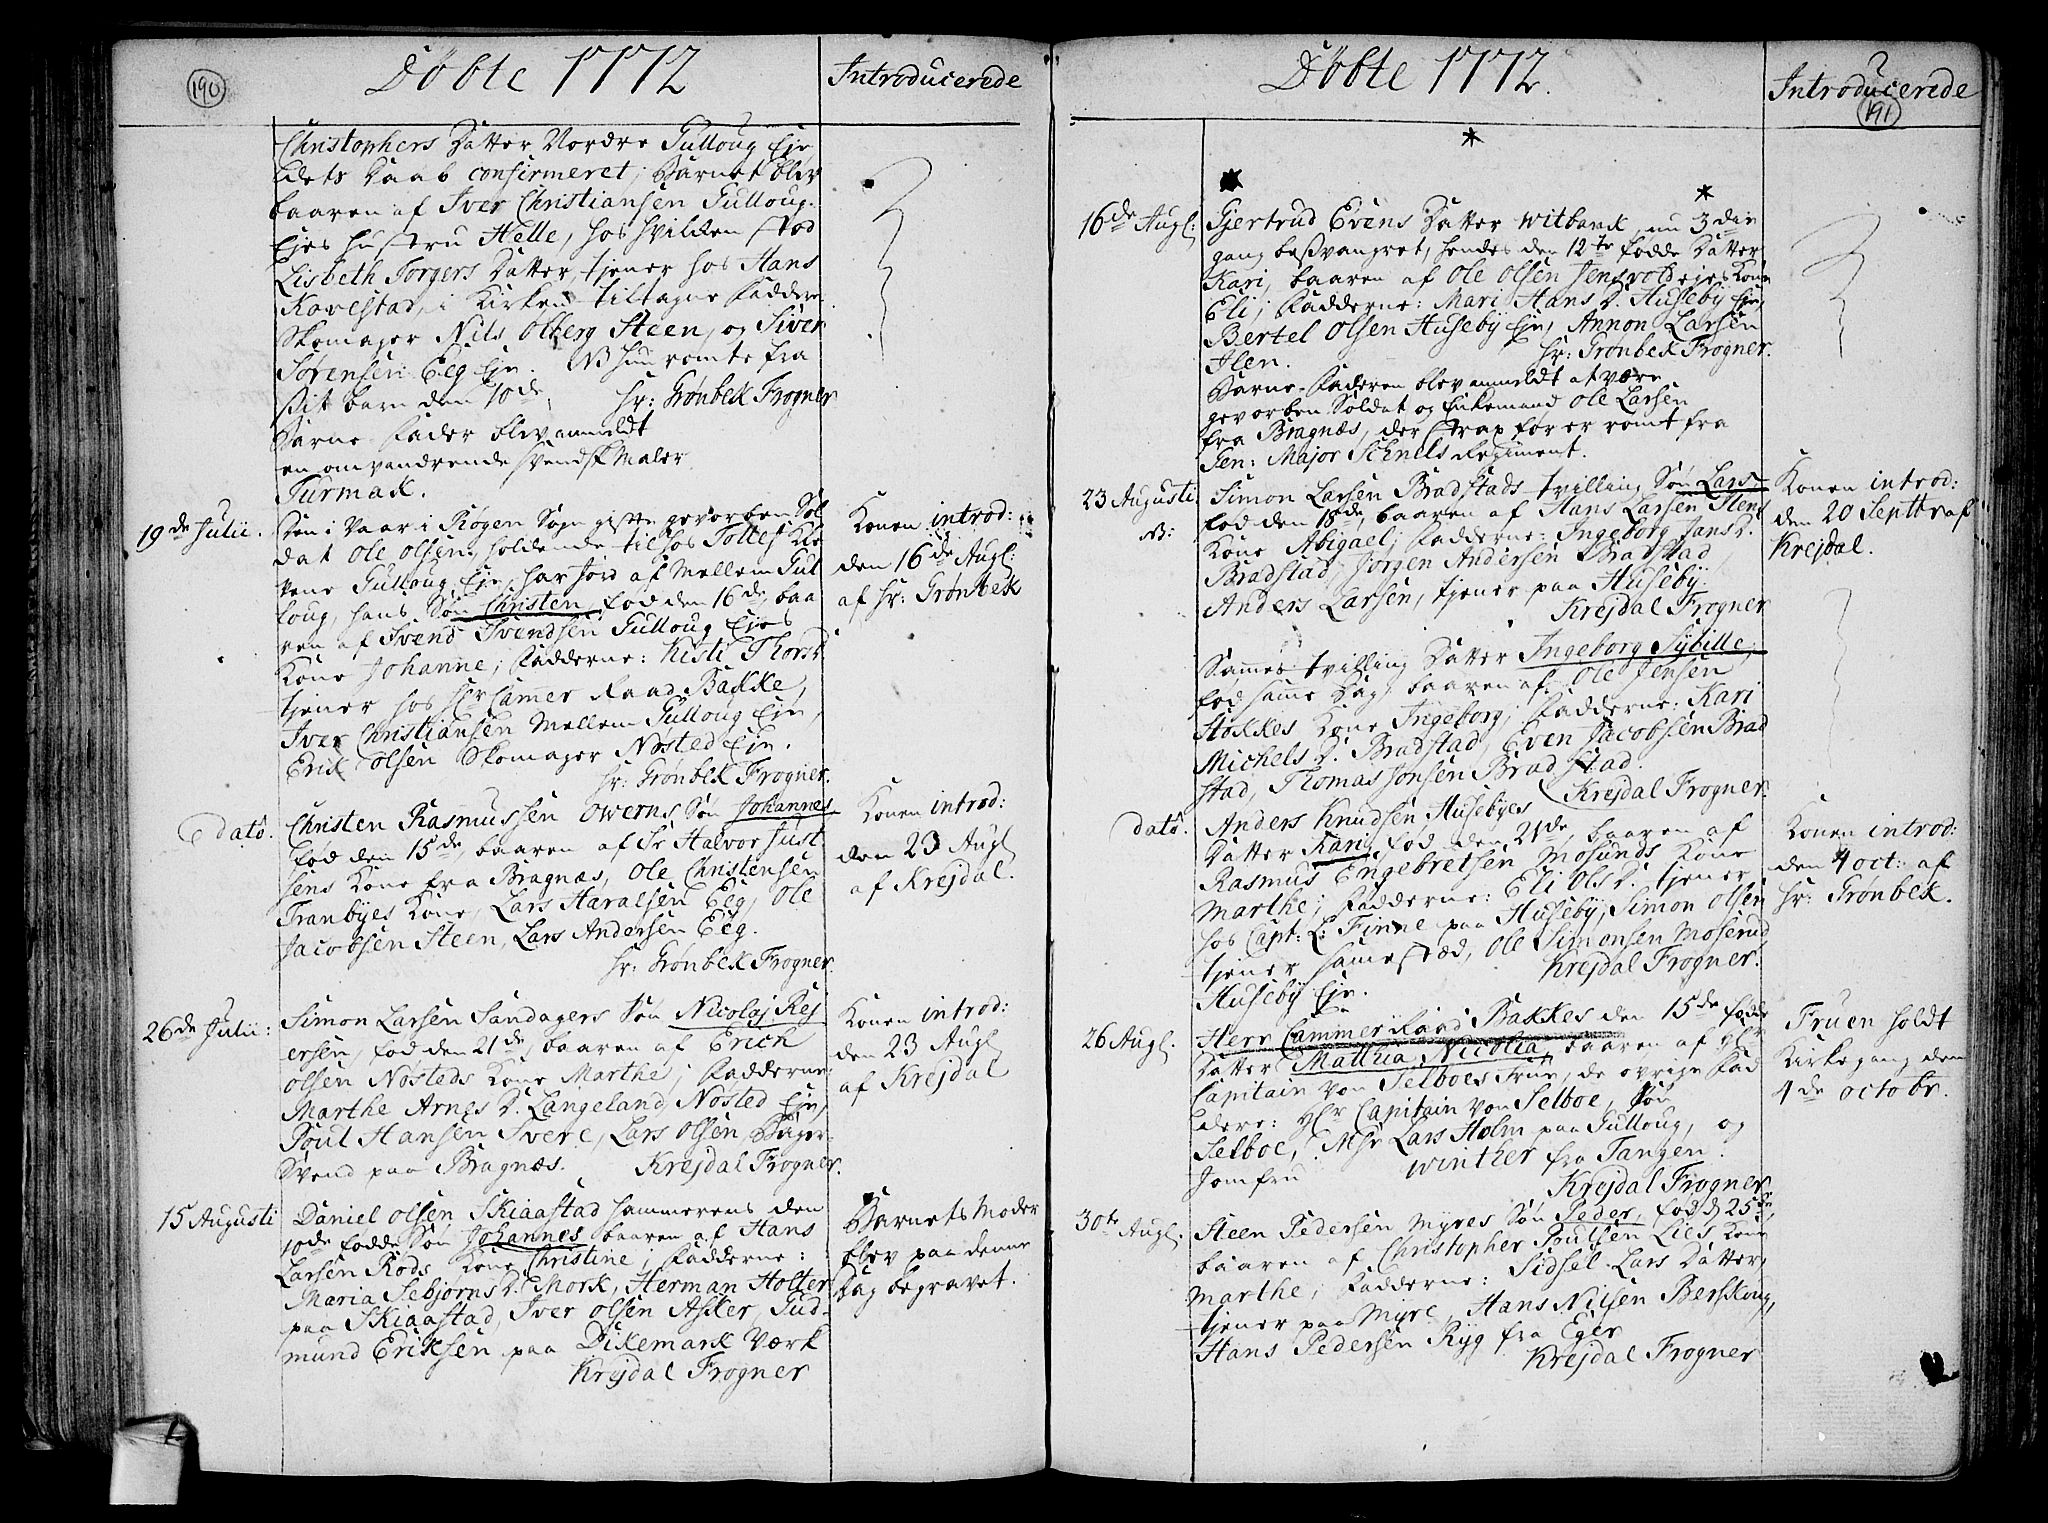 190
Döbte 1772
Introducerede
Christophers Datter Nordre Gulloug Eje
dets Daab confirmeret; Barnet blev
baaren af Iver Christiansen Gulloug
Ejes hustru Helle, hos hvilken stod
Lisbeth Torgers Datter, tjener hos Hans
Kovestad, i Kirken tiltagne Faddere
Skomager Nils Olberg Steen, og Siver
Sörensen Eeg Eje. NB hun romte fra
sit barn den 10de. hr: Grönbek Frogner
Barne-Fader blev anmeldt
en omvandrende svensk Maler
Turmak.
19de Julii.
Den i Vaar i Rögen Sogn gifte gevorben Sol
dat Ole Olsen, holdende til hos Tolles Klo
kene Gulloug Eje, har Jord af Mellem Gul
loug, hans Sön Christen, föd den 16de, baa
ren af Svend Svendsen Gulloug Ejes
Kone Johanne; Fadderne: Kisti Thors D
tjener hos Hr Cammer Raad Bakke,
Iver Christiansen Mellem Gulloug Eje,
Erik Olsen Skomager Nösted Eje.
hr: Grönbek Frogner.
Konen introd:
den 16de Augl:
af hr: Grönbek
dato.
Christen Rasmussen Owerns Sön Johannes
föd den 15de, baaren af Sr Halvor Just
sens Kone fra Bragnæs, Ole Christensen
Tranbyes Kone, Lars Haralsen Eeg, Ole
Jacobsen Steen, Lars Andersen Eeg.
hr: Grönbek Frogner.
Konen introd:
den 23 Augl
af Krejdal.
26de Julii:
Simon Larsen Sandagers Sön Nicolaj Rej
ersen, föd den 21de, baaren af Erich
Olsen Nösteds Kone Marthe; Fadderne:
Marthe Arnes D. Langeland, Nösted Eje,
Poul Hansen Svere, Lars Olsen, Bager-
Svend paa Bragnæs. Krejdal Frogner.
Konen introd:
den 23 Augl
af Krejdal
15 Augusti
Daniel Olsen Skiaastad hammerens den
10de födde Sön Johannes baaren af Hans
Larsen Röds Kone Christine; Fadderne:
Maria Sebjörns D. Mork, Herman Holter
paa Skiaastad, Iver Olsen Asker, Gud-
mund Eriksen paa Dikemark Værk
Krejdal Frogner
Barnets Moder
blev paa denne
Dag begravet.
Döbte 1772.
Introducerede
191
16de Augl:
Gjertrud Evens Datter Witbank, nu 3die
gang besvangret, hendes den 12te födde Datter
Kari, baaren af Ole Olsen Jensvold ejes Kone
Eli; Fadderne: Mari Hans D. Huseby Eje,
Bertel Olsen Huseby Eje, Annon Larsen
Ilen. hr: Grönbek Frogner.
Barne-Faderen blev anmeldt at være
gevorben Soldat og Enkemand Ole Larsen
fra Bragnæs, der strax för er romt fra
Gen: Major Schnels Regiment.
23 Augusti
NB:
Simon Larsen Bradstads tvilling Sön Lars,
föd den 18de, baaren af Hans Larsen Stens
Kone Abigael; Fadderne: Ingeborg Jans D.
Bradstad, Jörgen Andersen Bradstad
Anders Larsen, tjener paa Huseby.
Krejdal Frogner
Konen introd:
den 20 Septbr af
Krejdal.
Sammes tvilling Datter Ingeborg Sybille,
föd samme Dag, baaren af Ole Jensen
Stokkes Kone Ingeborg; Fadderne: Kari
Michels D. Bradstad, Even Jacobsen Brad
stad, Thomas Jonsen Bradstad.
Krejdal Frogner
dato.
Anders Knudsen Husebyes
Datter Kari, föd den 21de, baaren af
Rasmus Engebretsen Mosunds Kone
Marthe; Fadderne: Eli Ols D. tjener
hos Capt: L: Finne paa Huseby, Simon Olsen
tjener sammested, Ole Simonsen Moserud
Huseby Eje. Krejdal Frogner.
Konen introd:
den 4 oct: af
hr: Grönbek.
26 Augl.
Herr Cammer Raad Bakkes den 15de födde
Datter Mathia Nicolia, baaren af Hr
Capitain von Selboes Frue, de ovrige Fad
dere: Hr Capitain von Selboe, Sön
Selboe, Msr Lars Holm paa Gulloug, og
Jomfru Winther fra Tangen.
Krejdal Frogner
Fruen holdt
Kirkegang den
4de octobr.
30te Augl.
Steen Pedersen Myres Sön Peder, föd d 25de,
baaren af Christopher Poulsen Lies Kone
Marthe; Fadderne: Sidsel Lars Datter,
tjener paa Myre, Hans Nilsen Berskoug,
Hans Pedersen Ryg fra Eger
Krejdal Frogner